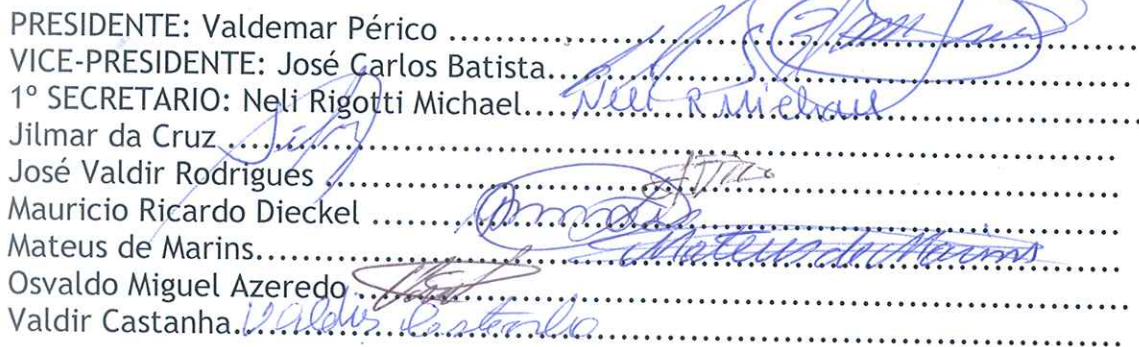 PRESIDENTE: Valdemar Périco ........................................................
VICE-PRESIDENTE: José Carlos Batista........................................................
1º SECRETARIO: Neli Rigotti Michael.... Neli R Michael
Jilmar da Cruz ........................................................
José Valdir Rodrigues ........................................................
Mauricio Ricardo Dieckel ........................................................
Mateus de Marins........................ Mateus de Marins
Osvaldo Miguel Azeredo ........................................................
Valdir Castanha. Valdir Castanha